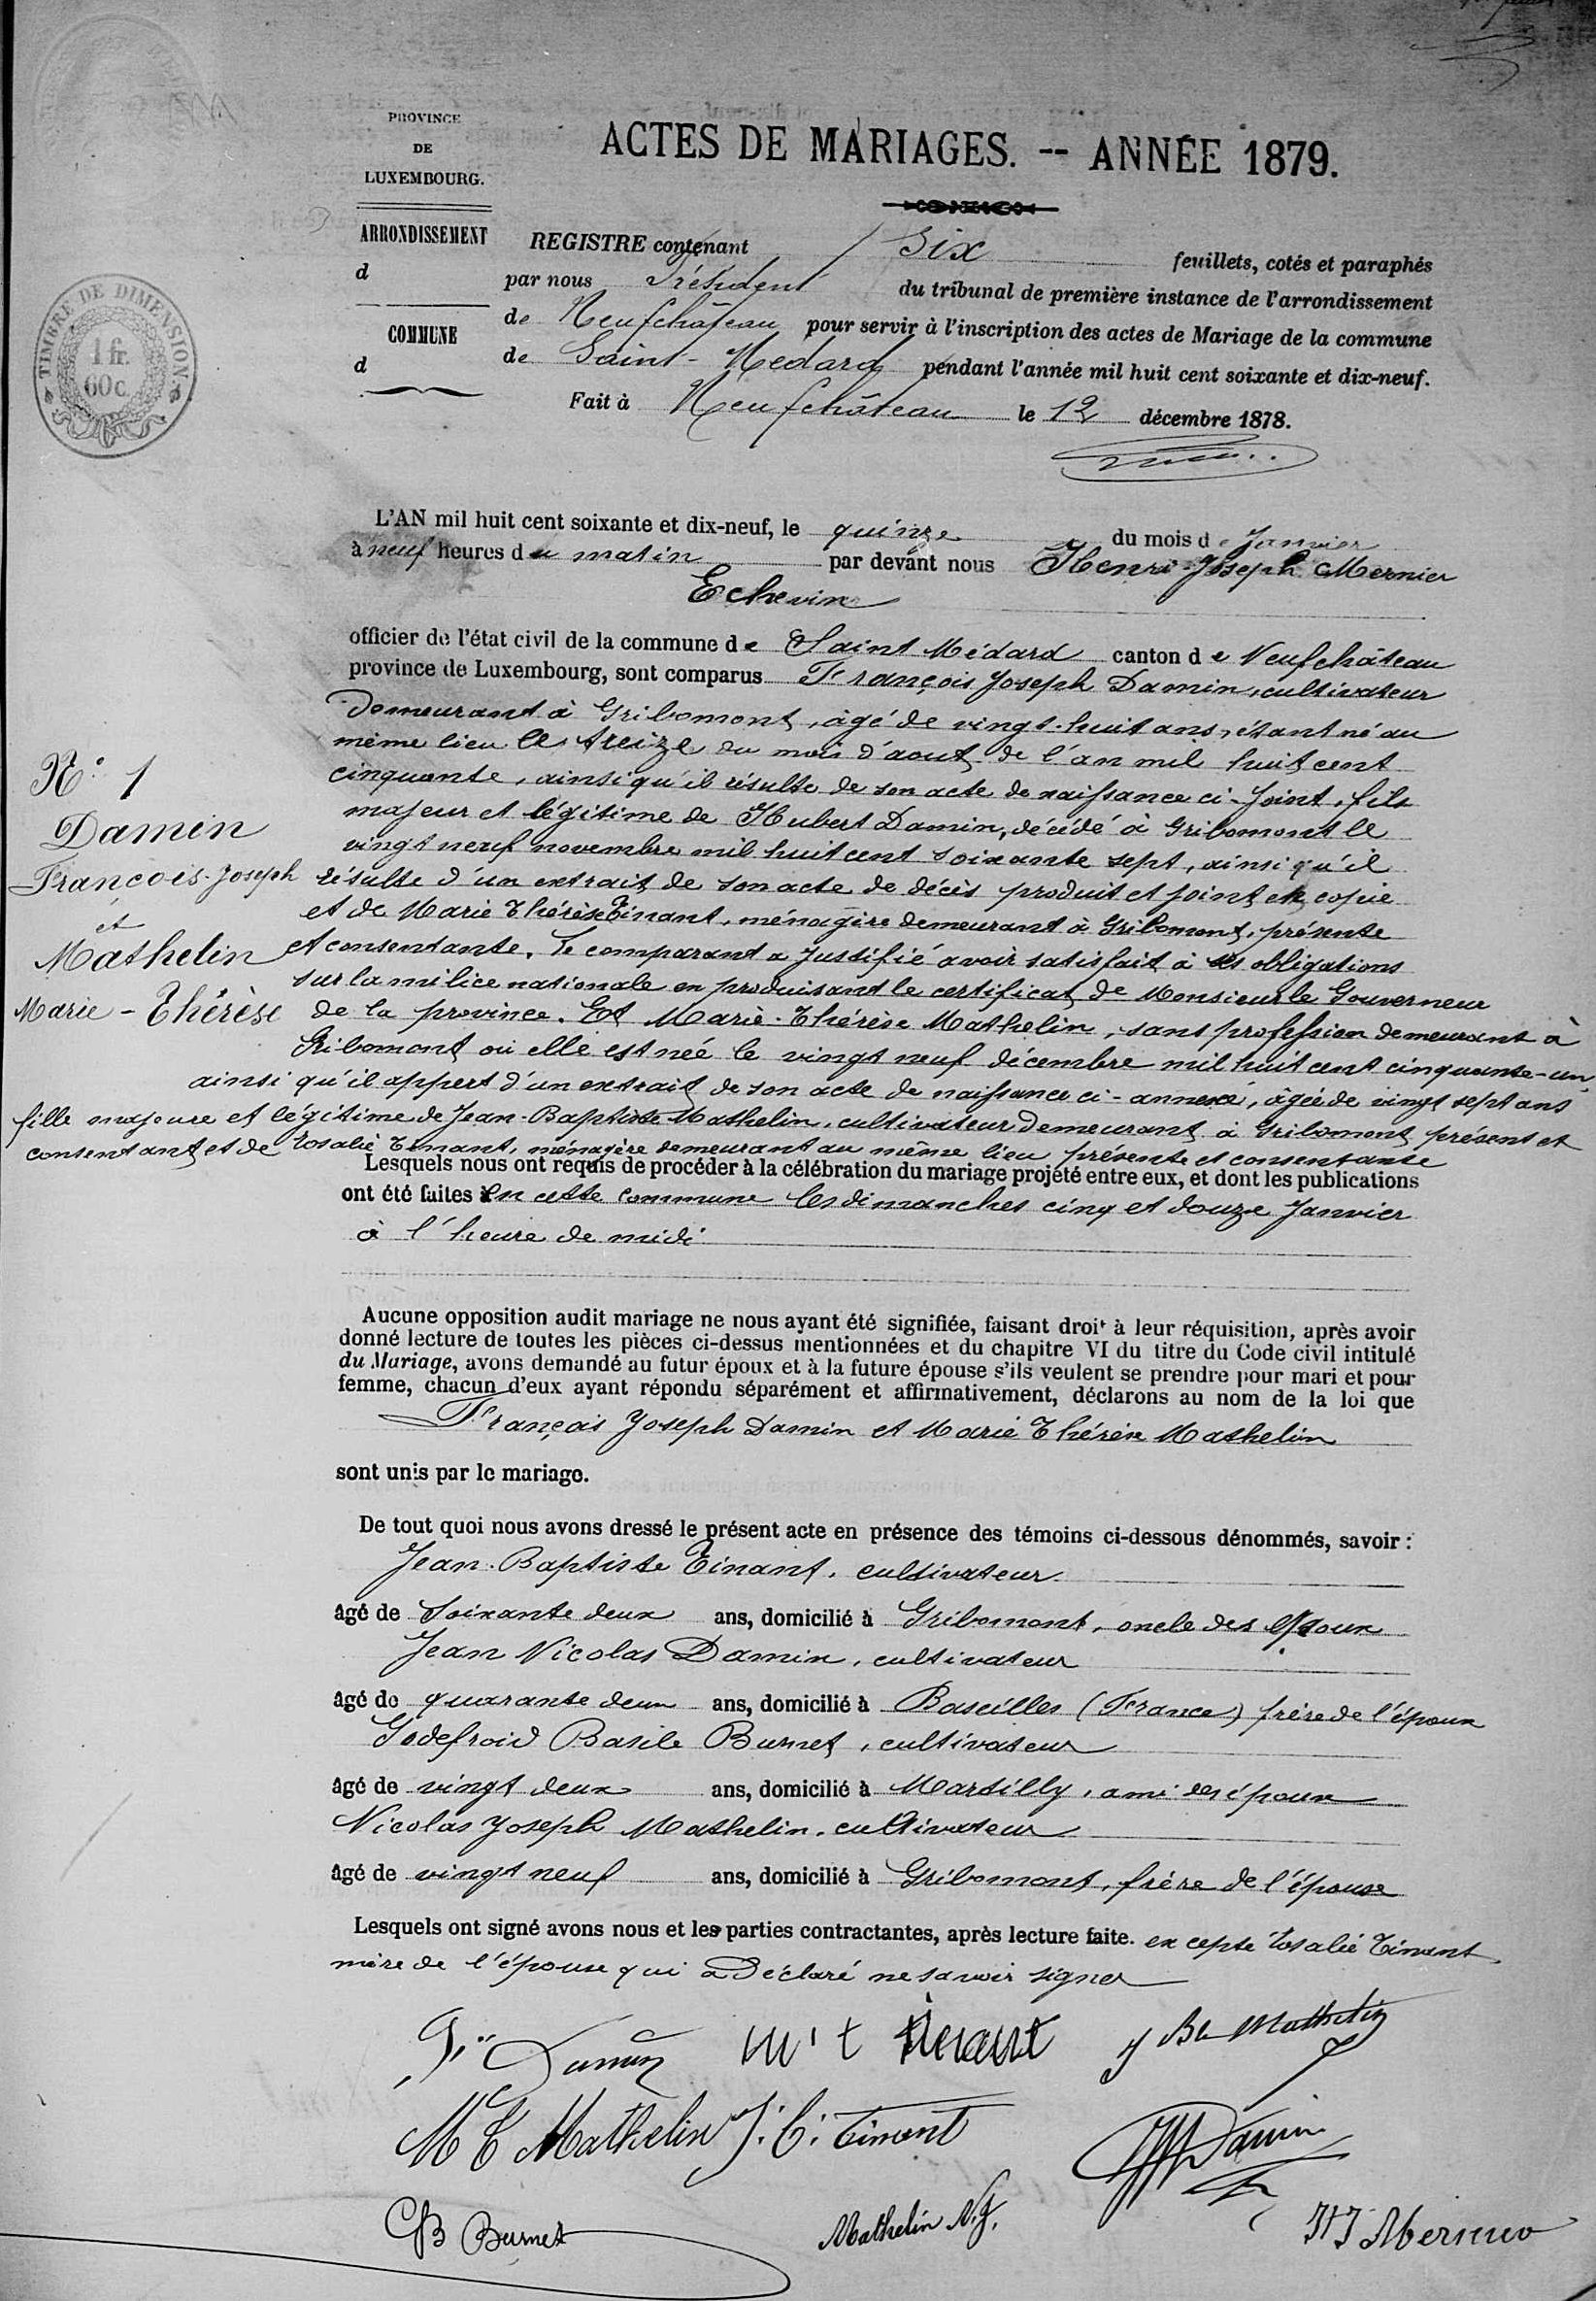 PROVINCE
DE
LUXEMBOURG.
ARRONDISSEMENT
d
COMMUNE
d
TIMBRE DE DIMENSION
1 fr.
60 c.
ACTES DE MARIAGES. -- ANNÉE 1879.
REGISTRE contenant Six feuillets, cotés et paraphés
par nous Président du tribunal de première instance de l'arrondissement
de Neufchâteau pour servir à l'inscription des actes de Mariage de la commune
de Saint-Médard pendant l'année mil huit cent soixante et dix-neuf.
Fait à Neufchâteau le 12 décembre 1878.
L'AN mil huit cent soixante et dix-neuf, le quinze du mois de Janvier
à neuf heures du matin par devant nous Henri-Joseph Mernier
Echevin
officier de l'état civil de la commune de Saint Médard canton de Neufchâteau
province de Luxembourg, sont comparus François Joseph Damin, cultivateur
demeurant à Gribomont, âgé de vingt-huit ans, étant né au
même lieu le treize du mois d'aout de l'an mil huit cent
cinquante, ainsi qu'il résulte de son acte de naissance ci-joint, fils
majeur et légitime de Hubert Damin, décédé à Gribomont le
vingt neuf novembre mil huit cent soixante sept, ainsi qu'il
résulte d'un extrait de son acte de décès produit et joint en copie
et de Marie Thérèse Tinant, ménagère demeurant à Gribomont, présente
et consentante. Le comparant a justifié avoir satisfait à ses obligations
sur la milice nationale en produisant le certificat de Monsieur le Gouverneur
de la province. Et Marie-Thérèse Mathelin, sans profession demeurant à
Gribomont où elle est née le vingt neuf décembre mil huit cent cinquante-un,
ainsi qu'il appert d'un extrait de son acte de naissance ci-annexé, âgée de vingt sept ans
fille majeure et légitime de Jean-Baptiste Mathelin, cultivateur demeurant à Gribomont, présent et
consentant et de Rosalie Tinant, ménagère demeurant au même lieu présente et consentante
N° 1
Damin
François-Joseph
et
Mathelin
Marie-Thérèse
Lesquels nous ont requis de procéder à la célébration du mariage projeté entre eux, et dont les publications
ont été faites en cette commune les dimanches cinq et douze Janvier
à l'heure de midi
Aucune opposition audit mariage ne nous ayant été signifiée, faisant droit à leur réquisition, après avoir
donné lecture de toutes les pièces ci-dessus mentionnées et du chapitre VI du titre du Code civil intitulé
du Mariage, avons demandé au futur époux et à la future épouse s'ils veulent se prendre pour mari et pour
femme, chacun d'eux ayant répondu séparément et affirmativement, déclarons au nom de la loi que
François Joseph Damin et Marie Thérèse Mathelin
sont unis par le mariage.
De tout quoi nous avons dressé le présent acte en présence des témoins ci-dessous dénommés, savoir :
Jean-Baptiste Tinant, cultivateur
âgé de soixante deux ans, domicilié à Gribomont, oncle des époux
Jean Nicolas Damin, cultivateur
âgé de quarante deux ans, domicilié à Baseilles (France) frère de l'époux
Godefroid Basile Burnet, cultivateur
âgé de vingt deux ans, domicilié à Martilly, ami des époux
Nicolas Joseph Mathelin, cultivateur
âgé de vingt neuf ans, domicilié à Gribomont, frère de l'épouse
Lesquels ont signé avons nous et les parties contractantes, après lecture faite. excepté Rosalie Tinant
mère de l'épouse qui a déclaré ne savoir signer
Damin m t tinant J Bte Mathelin
M T Mathelin J. B. Tinant Damin
GB Burnet Mathelin N.J. HJ Mernier